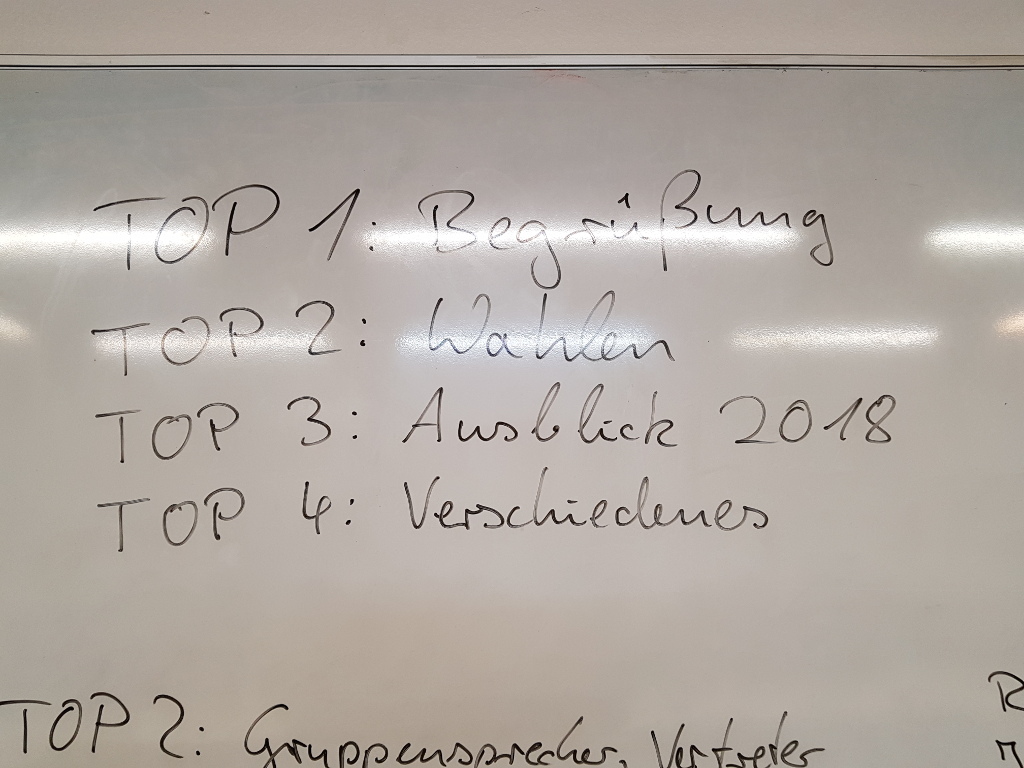 TOP 1: Begrüßung
TOP 2: Wahlen
TOP 3: Ausblick 2018
TOP 4: Verschiedenes
TOP 2: Gruppensprecher, Vertreter
R